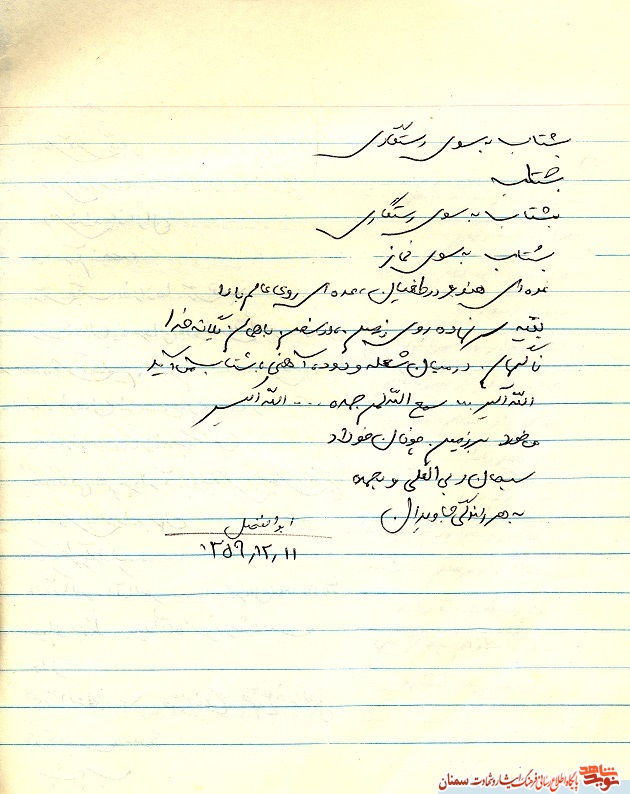 بشتاب به سوی رستگاری
بشتاب
بشتاب به سوی رستگاری
بشتاب به سوی نماز
عده‌ای هنوز در طغیان، عده‌ای روی عالم بالا
بقیه سر نهاده روی زمین، در سفر با یگانه خدا
ناگهان در میان شعله و دود، آهنی شتابش آید
الله اکبر ... سمع الله لمن حمده ... الله اکبر
بر زمین خونشان خونداد
سبحان ربی العلی و بحمده
به زندگی جاویدان
ابوالفضل
۱۳۵۹٫۱۲٫۱۱
نوید شاهد
پایگاه اطلاع رسانی فرهنگ ایثار و شهادت سمنان